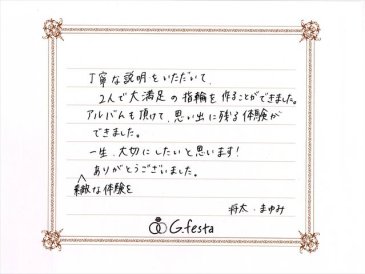 丁寧な説明をいただいて、
2人で大満足の指輪を作ることができました。
アルバムも頂けて、思い出に残る体験が
できました。
一生、大切にしたいと思います！
ありがとうございました。
素敵な体験を
将太・まゆみ
G.festa